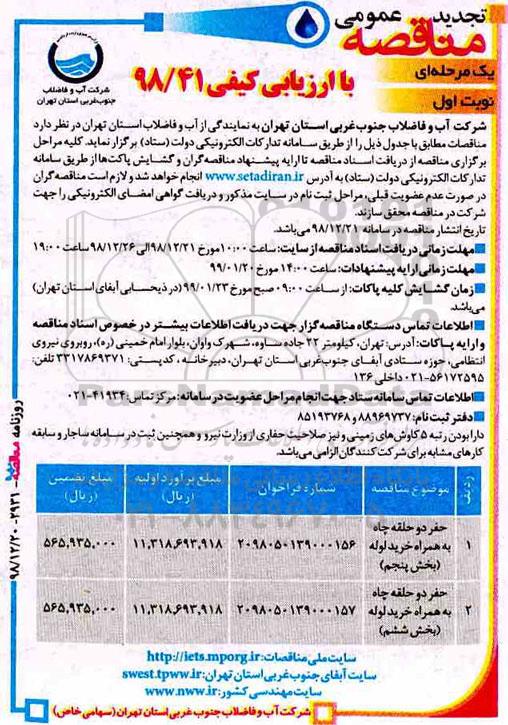 تجدید
مناقصه عمومی
یک مرحله‌ای
نوبت اول
با ارزیابی کیفی ۹۸/۴۱
شرکت آب و فاضلاب
جنوب‌غربی استان تهران
شرکت آب و فاضلاب جنوب غربی استان تهران به نمایندگی از آب و فاضلاب استان تهران در نظر دارد
مناقصات مطابق با جدول ذیل را از طریق سامانه تدارکات الکترونیکی دولت (ستاد) برگزار نماید. کلیه مراحل
برگزاری مناقصه از دریافت اسناد مناقصه تا ارایه پیشنهاد مناقصه‌گران و گشایش پاکت‌ها از طریق سامانه
تدارکات الکترونیکی دولت (ستاد) به آدرس www.setadiran.ir انجام خواهد شد و لازم است مناقصه‌گران
در صورت عدم عضویت قبلی، مراحل ثبت نام در سایت مذکور و دریافت گواهی امضای الکترونیکی را جهت
شرکت در مناقصه محقق سازند.
تاریخ انتشار مناقصه در سامانه ۹۸/۱۲/۲۱ می‌باشد.
مهلت زمانی دریافت اسناد مناقصه از سایت: ساعت ۱۰:۰۰ مورخ ۹۸/۱۲/۲۱ الی ۹۸/۱۲/۲۶ ساعت ۱۹:۰۰
مهلت زمانی ارایه پیشنهادات: ساعت ۱۴:۰۰ مورخ ۹۹/۰۱/۲۰
زمان گشایش کلیه پاکات: از ساعت ۰۹:۰۰ صبح مورخ ۹۹/۰۱/۲۳ (در ذیحسابی آبفای استان تهران)
می‌باشد.
اطلاعات تماس دستگاه مناقصه‌گزار جهت دریافت اطلاعات بیشتر در خصوص اسناد مناقصه
و ارایه پاکات: آدرس: تهران، کیلومتر ۲۲ جاده ساوه، شهرک واوان، بلوار امام خمینی (ره)، روبروی نیروی
انتظامی، حوزه ستادی آبفای جنوب‌غربی استان تهران، دبیرخانه، کدپستی: ۳۳۱۷۸۶۹۳۷۱ تلفن:
۰۲۱-۵۶۱۷۲۵۹۵ داخلی ۱۳۶
اطلاعات تماس سامانه ستاد جهت انجام مراحل عضویت در سامانه: مرکز تماس: ۴۱۹۳۴-۰۲۱
دفتر ثبت نام: ۸۸۹۶۹۷۳۷ و ۸۵۱۹۳۷۶۸
دارا بودن رتبه ۵ کاوش‌های زمینی و نیز صلاحیت حفاری از وزارت نیرو و همچنین ثبت در سامانه ساجار و سابقه
کارهای مشابه برای شرکت کنندگان الزامی می‌باشد.
ردیف موضوع مناقصه شماره فراخوان مبلغ برآورد اولیه (ریال) مبلغ تضمین (ریال)
۱ حفر دو حلقه چاه به همراه خرید لوله (بخش پنجم) ۲۰۹۸۰۵۰۱۳۹۰۰۰۱۵۶ ۱۱,۳۱۸,۶۹۳,۹۱۸ ۵۶۵,۹۳۵,۰۰۰
۲ حفر دو حلقه چاه به همراه خرید لوله (بخش ششم) ۲۰۹۸۰۵۰۱۳۹۰۰۰۱۵۷ ۱۱,۳۱۸,۶۹۳,۹۱۸ ۵۶۵,۹۳۵,۰۰۰
سایت ملی مناقصات: http://iets.mporg.ir
سایت آبفای جنوب غربی استان تهران: swest.tpww.ir
سایت مهندسی کشور: www.nww.ir
شرکت آب و فاضلاب جنوب غربی استان تهران (سهامی خاص)
روزنامه مناقصه - ۲۹۳۱ - ۹۸/۱۲/۲۰